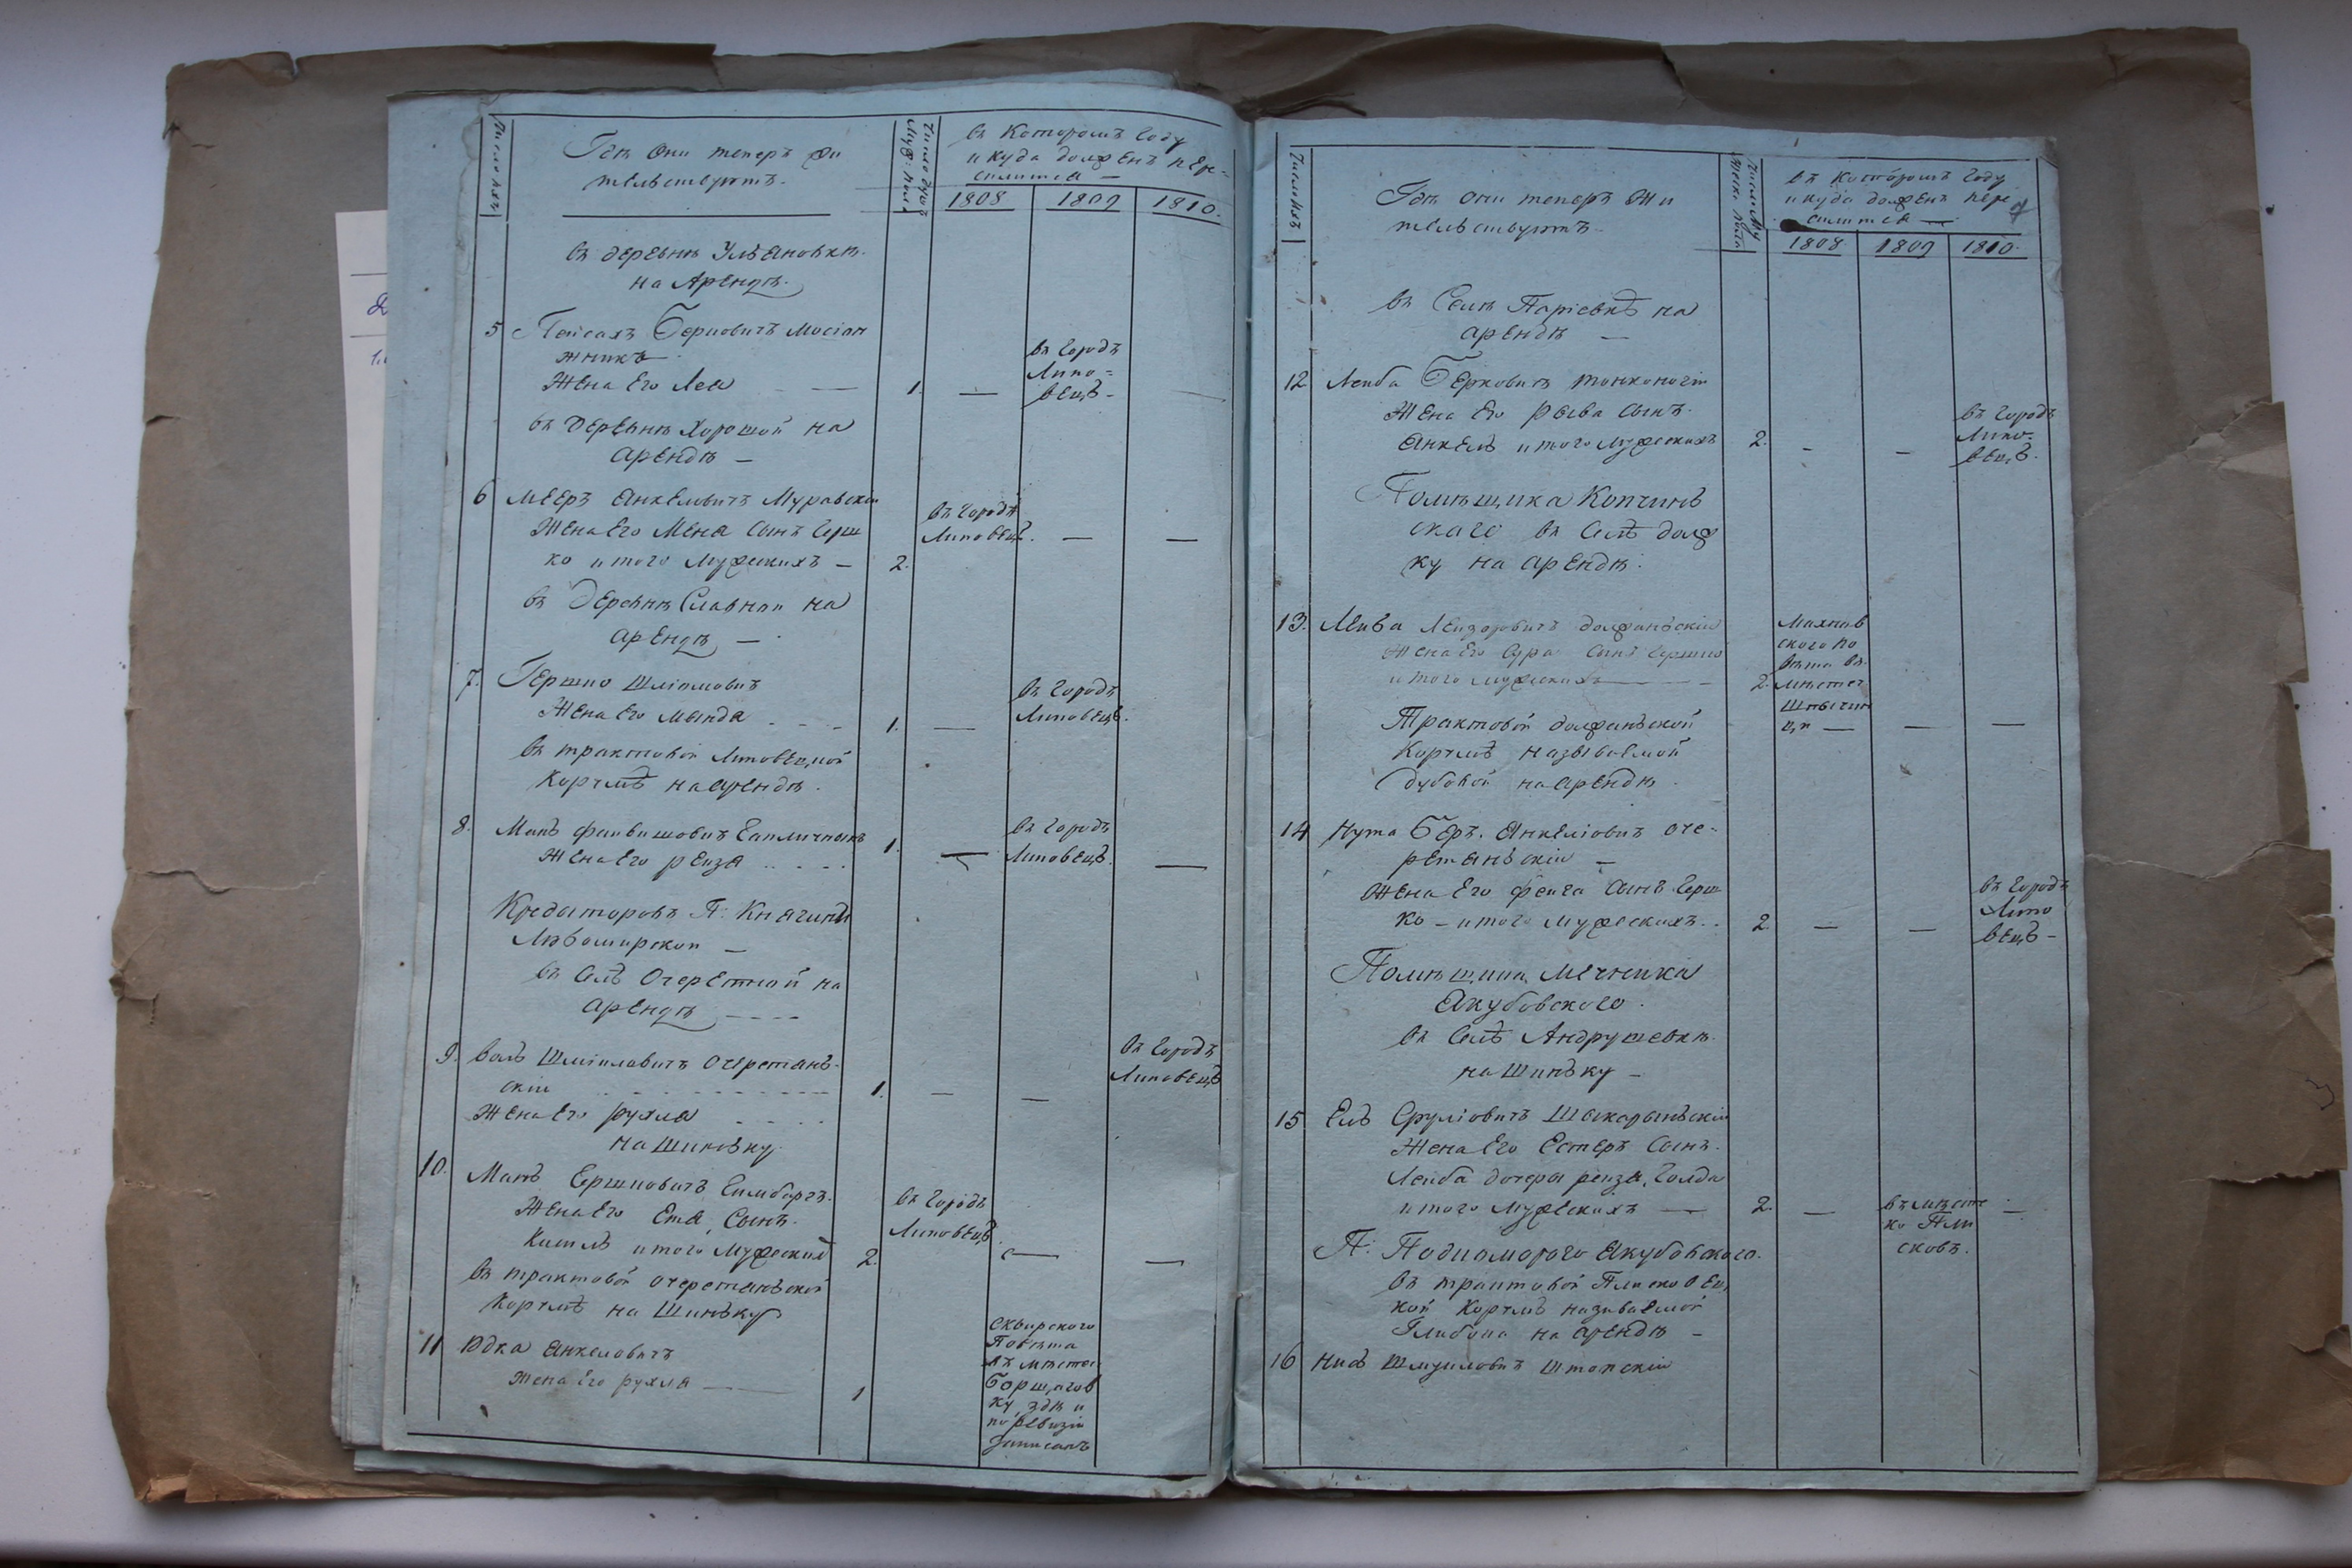 Число ихъ
Гдѣ они теперъ жи
тельствуютъ.
Число душъ
муж: пола
въ которомъ году
и куда долженъ пере=
селится —
1808
1809
1810.
въ деревнѣ Ульяновкѣ
на Арендѣ.
5
Пейсахъ Берковичъ
жникъ
Жена Его Лея — —
1.
—
въ городъ
Липо=
вецъ -
въ деревнѣ Хорошой на
арендѣ —
6
Мееръ Янкеловичъ Муравскій
Жена Его Мена сынъ Герш
ко итого мужескихъ —
2.
въ городъ
Липовецъ.
—
—
въ деревнѣ Славной на
арендѣ —
7.
Гершко Шліомовичъ
Жена Его Мында - - -
1.
—
въ городъ
Липовецъ.
въ трактовой Липовецкой
Корчмѣ на арендѣ.
8.
Жена Его рейза . . . .
1.
—
въ городъ
Липовецъ.
—
Кредиторовъ П: Княгини
Любомирской —
въ селѣ Очеретной на
арендѣ - - - -
9.
Шміиловичъ Очеретянь-
скій
1.
—
—
въ городъ
Липовецъ
Жена Его рухля . . . .
на Шинъку
10.
Жена Его Етя, Сынъ.
итого мужеский
2.
въ городъ
Липовецъ.
—
—
въ трактовой очеретянской
Корчмѣ на Шинъку
11
Юдка Янкеловичъ
Жена Его рухля — —
1
сквирского
Повѣта
въ мѣстеч
Борщагов
ку, гдѣ и
по ревизіи
записанъ
Число ихъ
Гдѣ они теперъ жи
тельствуютъ.
въ которомъ году
и куда долженъ пере
селится —
1808
1809
1810.
въ Селѣ Паріевкѣ на
арендѣ —
12
Лейба Берковичъ тонконогій
Жена Его Рыва сынъ.
Янкель итого мужескихъ
2.
-
-
въ городъ
Липо-
вецъ.
Помѣщика Копчинъ
скаго въ селѣ долж
ку на арендѣ.
13.
Лейба Лейзоровичъ должанскій
Жена Его Сура сынъ Гершко
итого мужескихъ — — —
2.
Махнов
ского по
вѣта въ
мѣстеч
—
—
Трактовой должанской
Корчмѣ называемой
Дубовой на арендѣ.
14
Нута Беръ. Янкеліовичъ оче-
ретянскій —
Жена Его фейга сынъ Герш
ко - итого мужескихъ. .
2
—
—
въ городъ
Липо
вецъ -
Помѣщика Мечника
Якубовского.
въ Селѣ Андрушевкѣ
на Шинъку —
15
Ель Сруліовичъ
Жена Его Естеръ Сынъ.
Лейба дочеры рейзя, Голда
итого мужескихъ —
2.
—
въ мѣстеч
ко Пли
сковъ.
—
П: Подкоморого Якубовского.
въ трактовой Плисковец
кой Корчмѣ називаемой
Глибока на арендѣ -
16